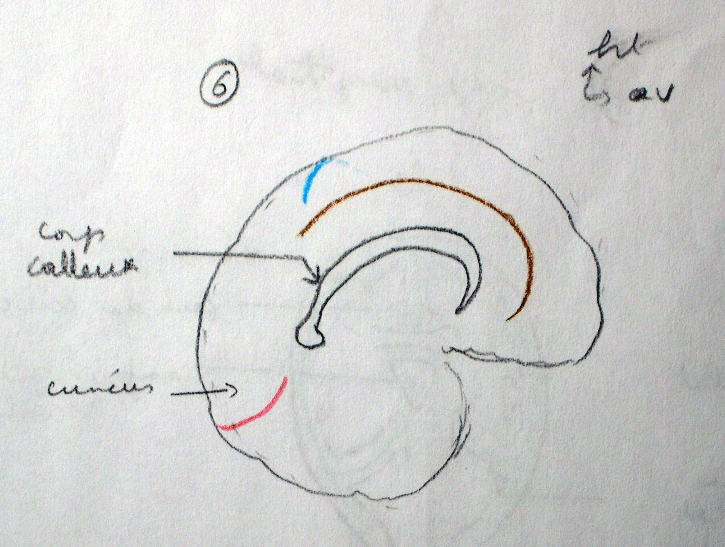 6
ht
av
corps
calleux
cunéus